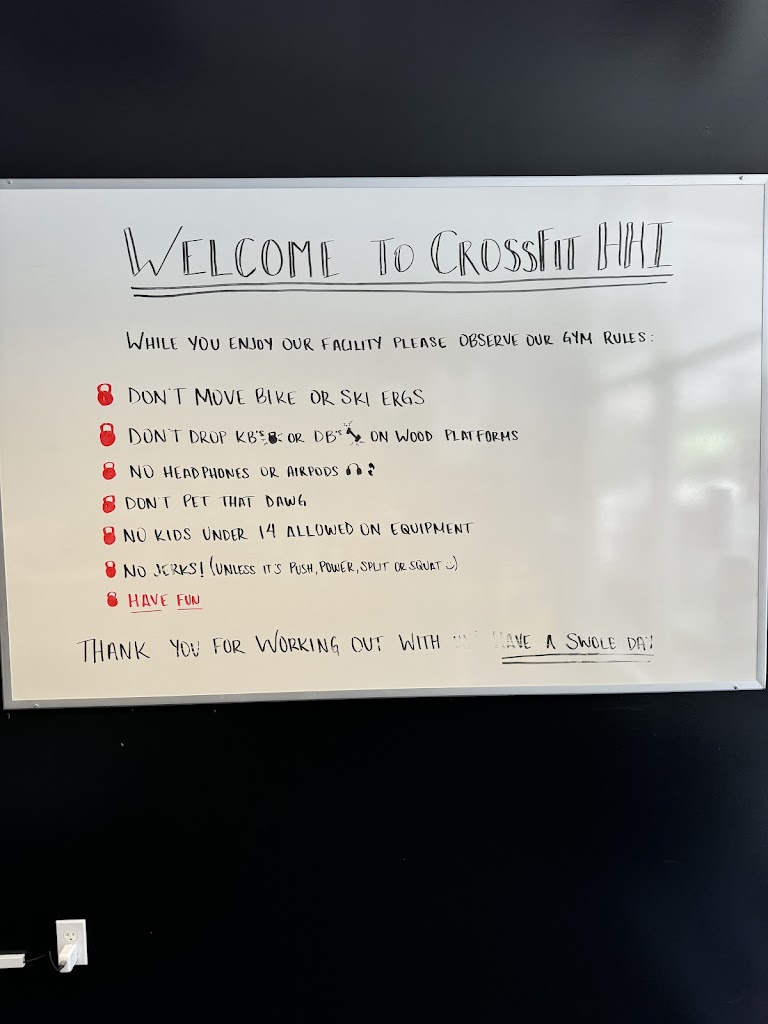 WELCOME TO CROSSFIT HHI
WHILE YOU ENJOY OUR FACILITY PLEASE OBSERVE OUR GYM RULES:
DON'T MOVE BIKE OR SKI ERGS
DON'T DROP KB'S OR DB'S ON WOOD PLATFORMS
NO HEADPHONES OR AIRPODS
DON'T PET THAT DAWG
NO KIDS UNDER 14 ALLOWED ON EQUIPMENT
NO JERKS! (UNLESS IT'S PUSH, POWER, SPLIT OR SQUAT :))
HAVE FUN
THANK YOU FOR WORKING OUT WITH HAVE A SWOLE DAY